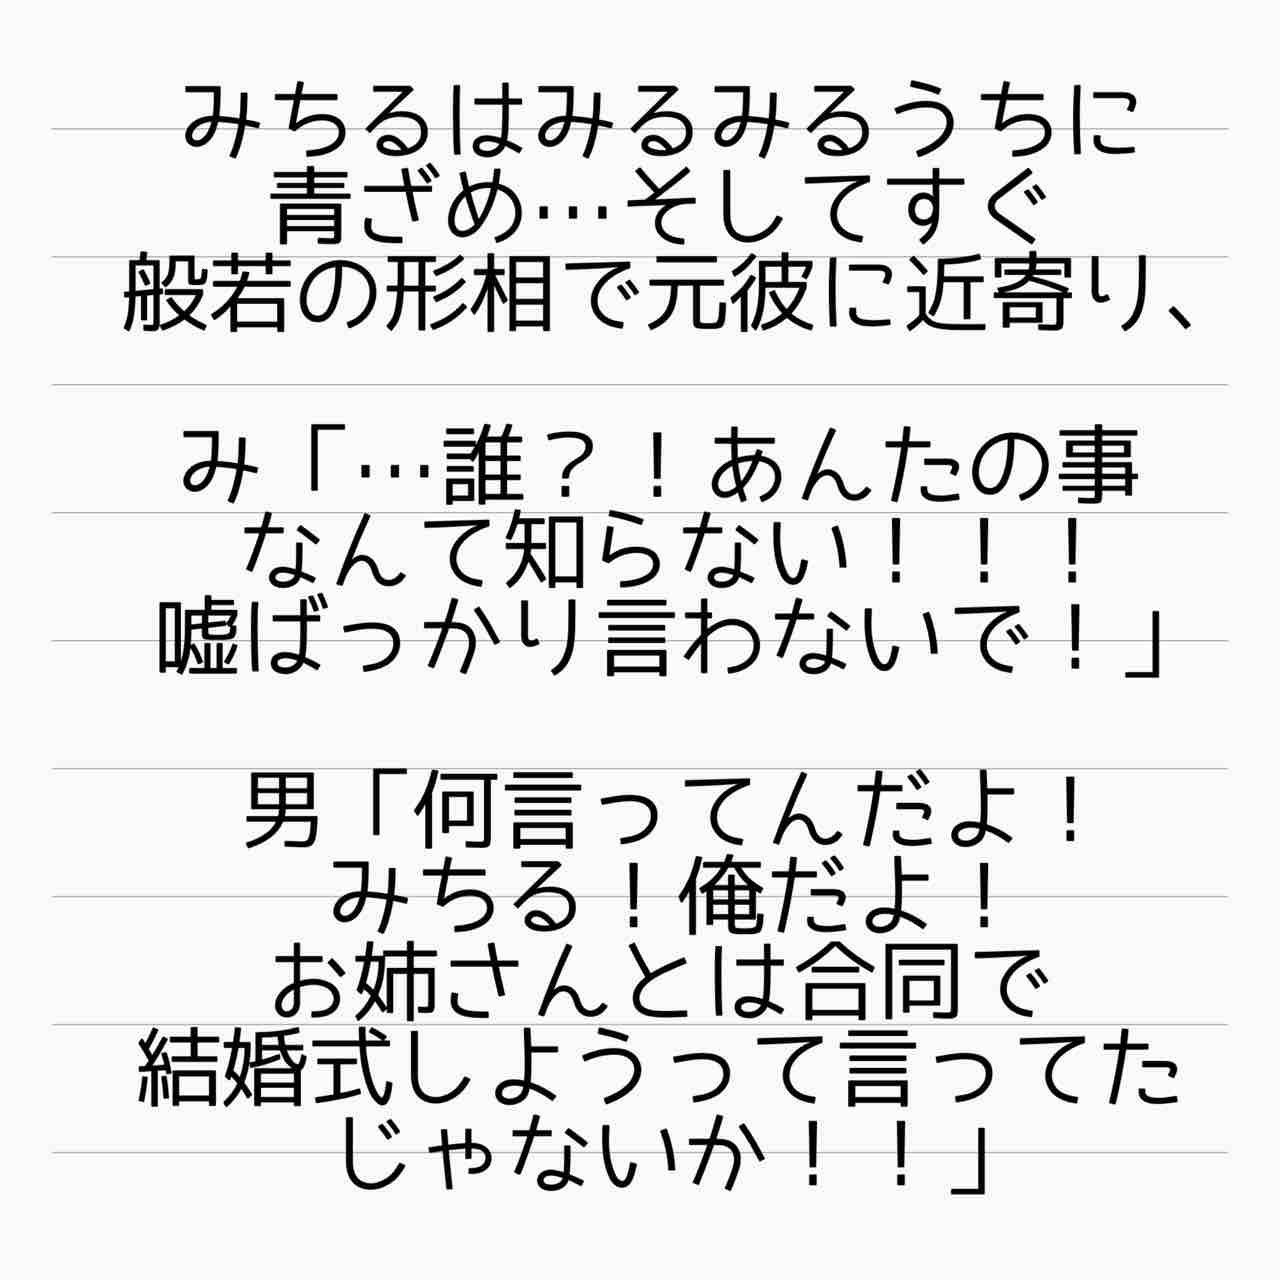 みちるはみるみるうちに
青ざめ…そしてすぐ
般若の形相で元彼に近寄り、
み「…誰？！あんたの事
なんて知らない！！！
嘘ばっかり言わないで！」
男「何言ってんだよ！
みちる！俺だよ！
お姉さんとは合同で
結婚式しようって言ってた
じゃないか！！」